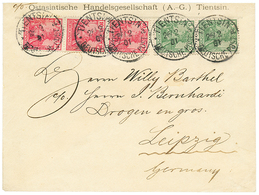 c/o Ostasiatische Handelsgesellschaft (A.-G.) Tientsin.
TIENTSIN
DEUTSCHE POST
Herren Willy Barthel
c/o Herren J. Bernhardi
Drogen en gros.
Leipzig
Germany